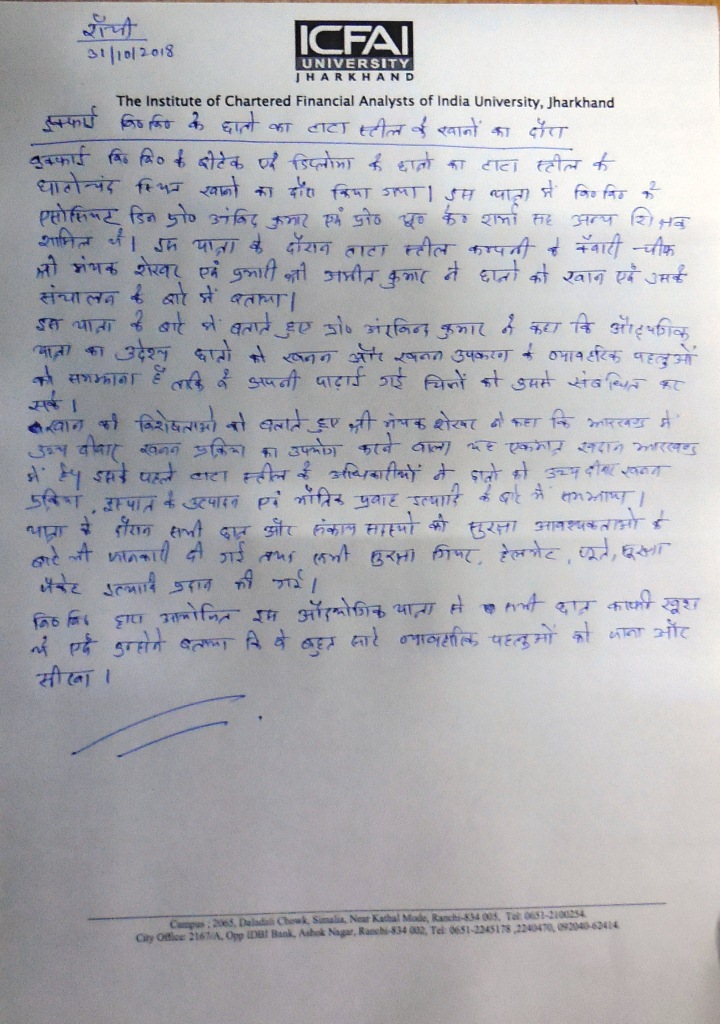 राँची
31/10/2018
ICFAI
UNIVERSITY
JHARKHAND
The Institute of Chartered Financial Analysts of India University, Jharkhand
इक्फाई वि०वि० के छात्रों का टाटा स्टील के खानों का दौरा
इक्फाई वि० वि० के बीटेक एवं डिप्लोमा के छात्रों का टाटा स्टील के
स्थित खानों का दौरा किया गया। इस यात्रा में वि०वि० के
एसोसियेट डिन प्रो० अरविंद कुमार एवं प्रो० के० शर्मा सह अन्य शिक्षक
शामिल थे। इस यात्रा के दौरान टाटा स्टील कम्पनी के क्वैरी चीफ
श्री मंयक शेखर एवं प्रभारी श्री अमीत कुमार ने छात्रों को खान एवं उसके
संचालन के बारे में बताया।
इस यात्रा के बारे में बताते हुए प्रो० अरविन्द कुमार ने कहा कि औद्योगिक
यात्रा का उदेश्य छात्रों को खनन और खनन उपकरण के व्यावहारिक पहलुओं
को समझाना है ताकि वे अपनी पढ़ाई गई चिजों को उससे संबंधित कर
सके।
खान की विशेषताओं को बताते हुए श्री मंयक शेखर ने कहा कि झारखण्ड में
उच्च दीवार खनन प्रक्रिया का उपयोग करने वाला यह एकमात्र खदान झारखण्ड
में है। इसके पहले टाटा स्टील के अधिकारीयों ने छात्रों को उच्च दीवार खनन
प्रक्रिया, इस्पात के उत्पादन एवं भौतिक प्रवाह इत्यादि के बारे में समझाया।
यात्रा के दौरान सभी छात्र और संकाय सदस्यों को सुरक्षा आवश्यकताओं के
बारे में जानकारी दी गई तथा सभी सुरक्षा गियर, हेलमेट, जूते, सुरक्षा
जैकेट इत्यादि प्रदान की गई।
वि०वि० द्वारा आयोजित इस औद्योगिक यात्रा से सभी छात्र काफी खुश
थे एवं उन्होंने बताया कि वे बहुत सारे व्यावहारिक पहलुओं को जाना और
सीखा।
Campus : 2065, Daladali Chowk, Simalia, Near Kathal Mode, Ranchi-834 005, Tel: 0651-2100254.
City Office: 2167/A, Opp IDBI Bank, Ashok Nagar, Ranchi-834 002, Tel: 0651-2245178 ,2240470, 092040-62414.